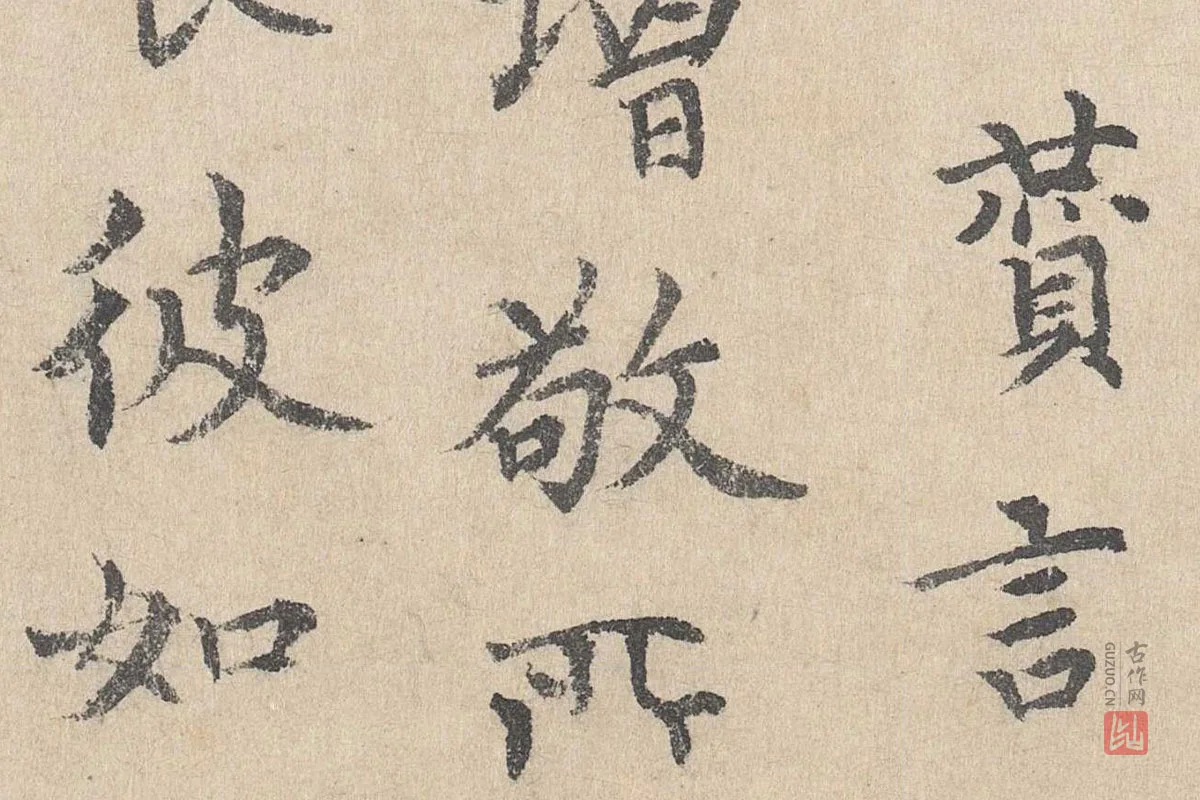 言
增敬所
彼如
古作网
GUZUO.CN